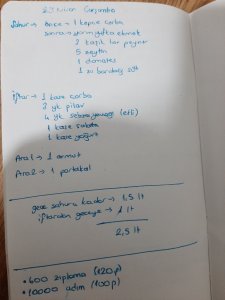 29 Nisan Çarşamba
Sahur → önce → 1 kepçe çorba
sonra → yarım yufka ekmek
2 kaşık lor peynir
5 zeytin
1 domates
1 su bardağı süt
iftar → 1 kase çorba
3 yk pilav
4 yk sebze yemeği (etli)
1 kase salata
1 kase yoğurt
Ara1 → 1 armut
Ara2 → 1 portakal
gece sahura kadar → 1,5 lt
iftardan geceye → 1 lt
2,5 lt
• 600 zıplama (120p)
• 10000 adım (100p)